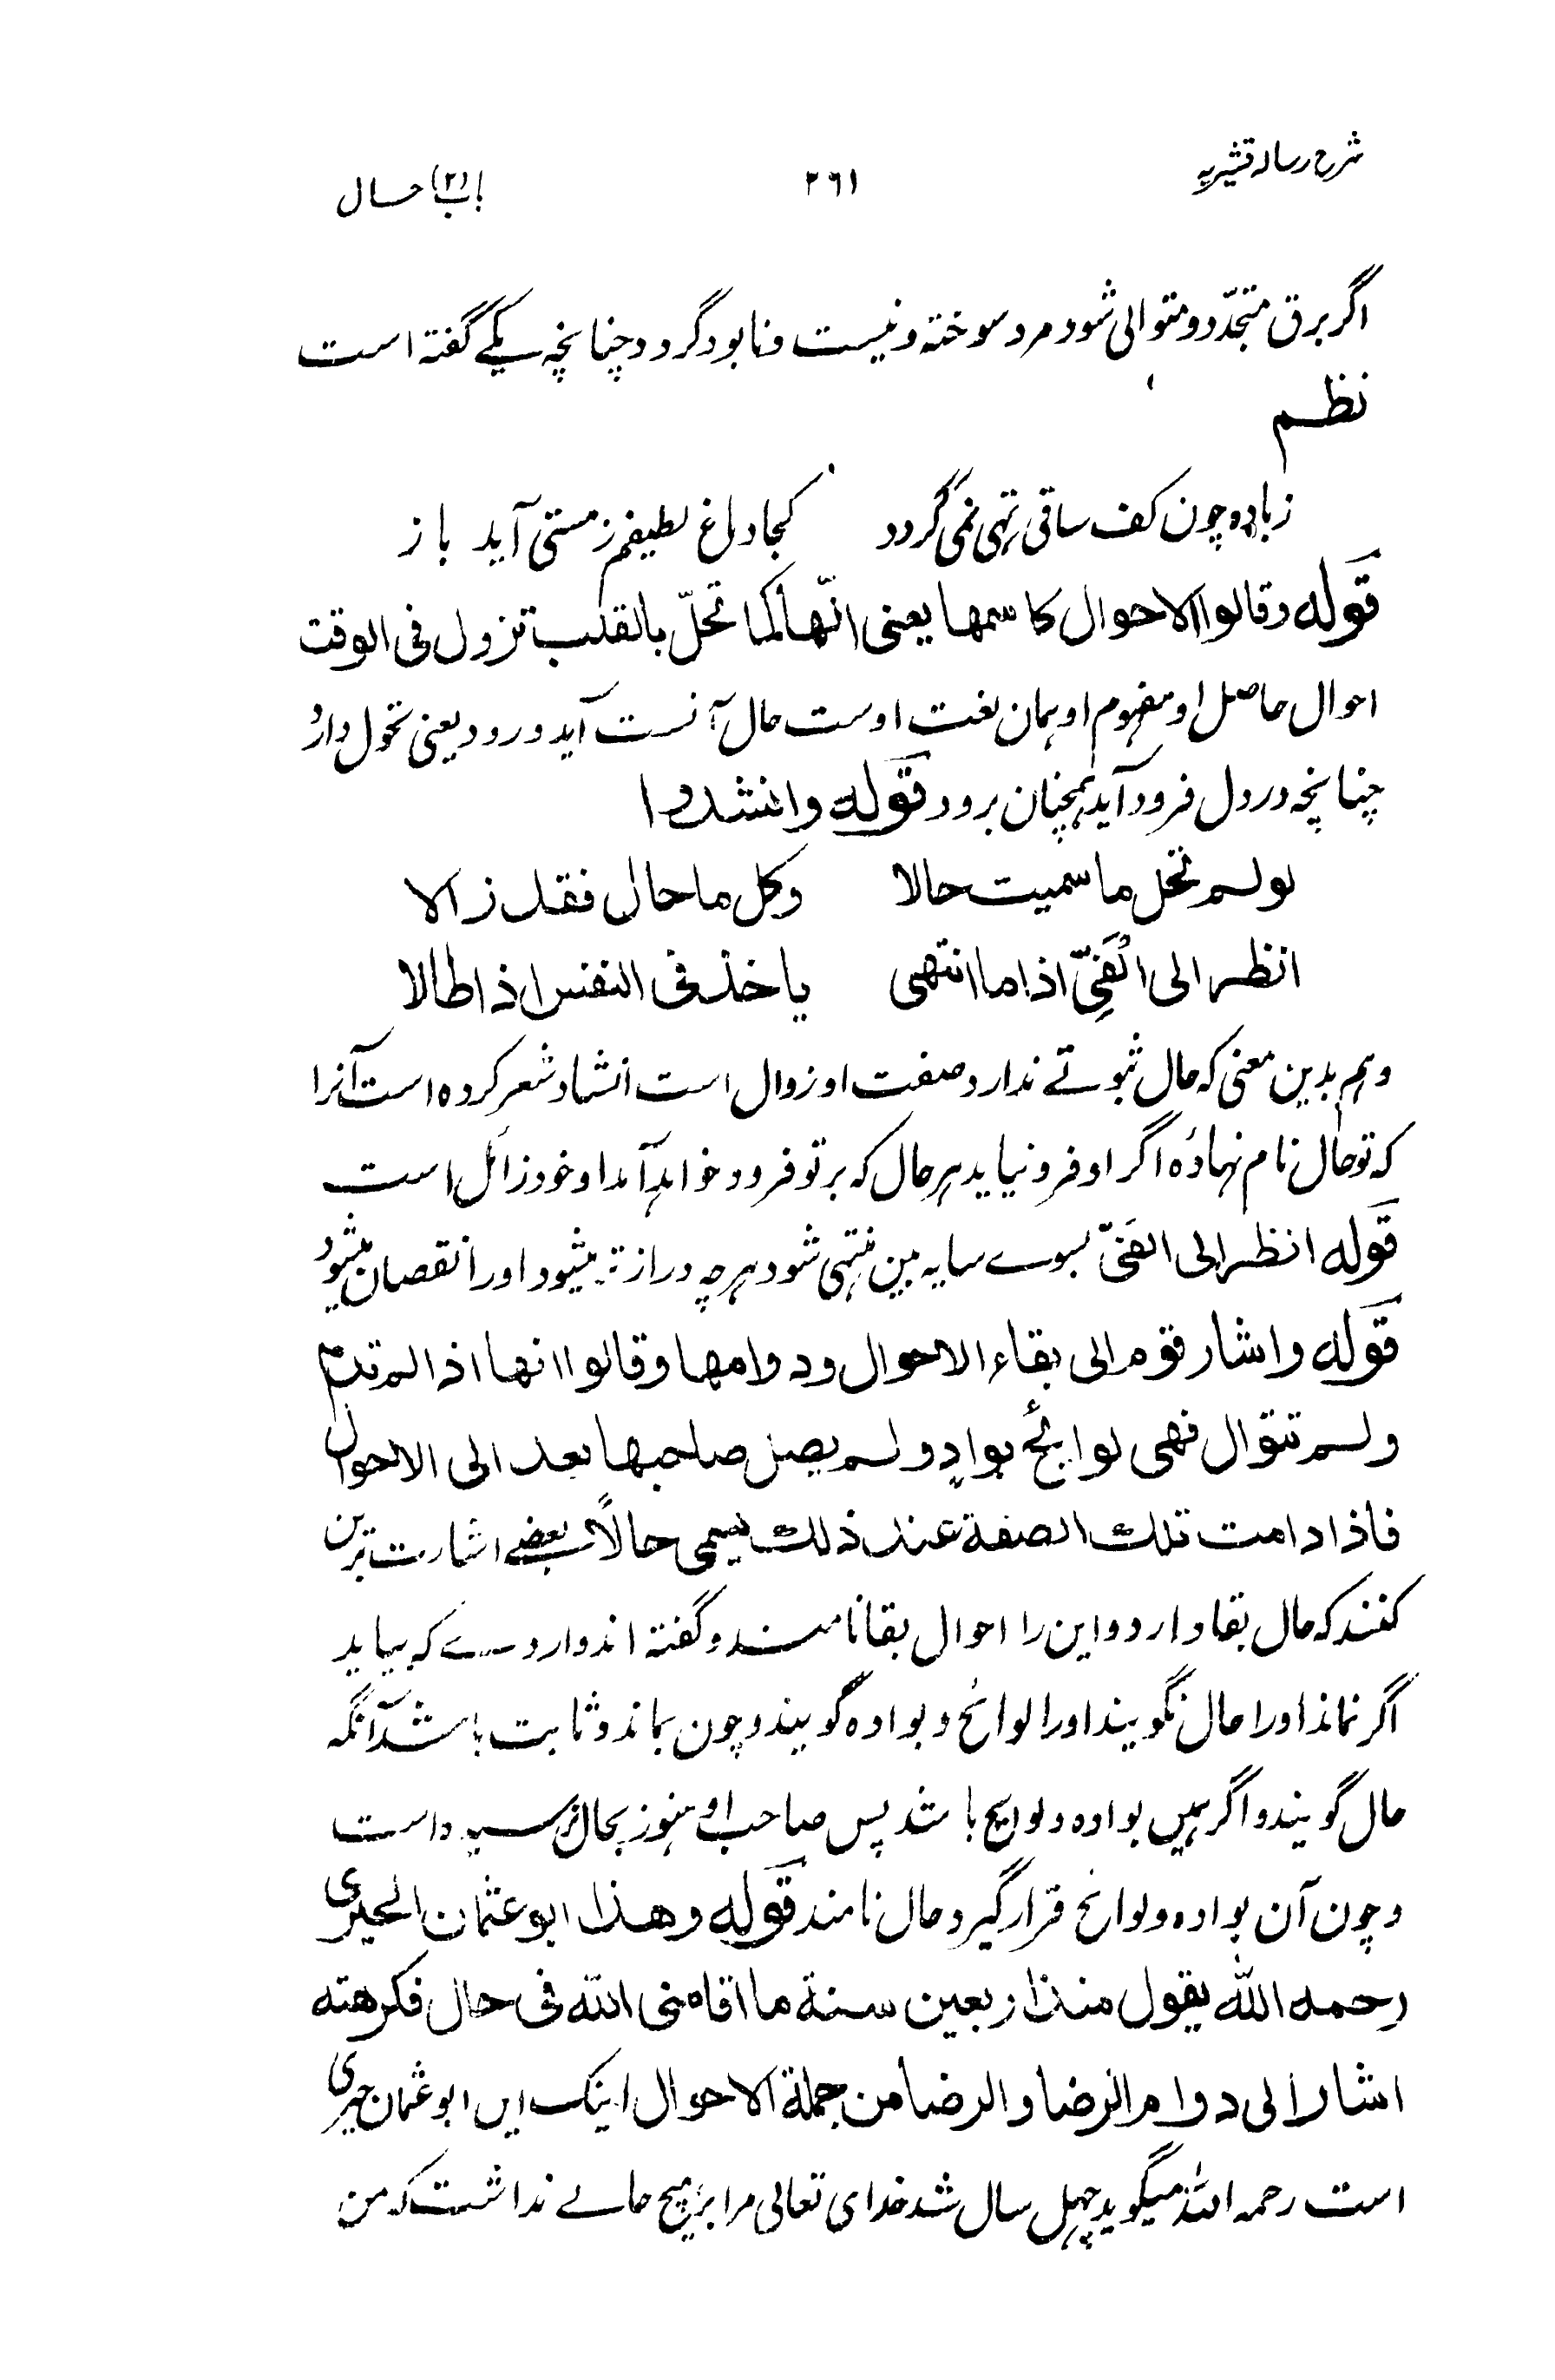 شرح رساله قشیریه ۲۶۱ باب (۲) حال
اگر برق متجدّد و متوالی شود مرد سوخته و نیست و نابود گردد چنانچه یکے گفته است
نظم
زباده چون کف ساقی تهی نمی گردد کجا دماغ لطیفم ز مستی آید باز
قوله وقالوا الاحوال کاسمها یعنی انّها کما تحلّ بالقلب تزول فی الوقت
احوال حاصل او مفهوم او همان لغت اوست حال آنست آید و رود یعنی تحول دارد
چنانچه در دل فرود آید همچنان برود قوله وانشدوا
لو لم تحل ما سمیت حالا وکل ما حال فقد زالا
انظر الی الفَیِّ اذا ما انتهی یاخذ فی النقص اذا طالا
و هم بدین معنی که حال ثبوتے ندارد صفت او زوال است انشاد شعر کرده است آنرا
که تو حال نام نهادهٔ اگر او فرو نیاید هر حال که بر تو فرود خواهد آمد او خود زائل است
قوله انظر الی الفَیّ بسوے سایه ببین منتهی شود هر چه دراز تر میشود او را نقصان میشود
قوله واشار قوم الی بقاء الاحوال ودوامها وقالوا انها اذا لم تدم
ولم تتوال فهی لوایح بوادٍ ولم یصل صاحبها بعد الی الاحوال
فاذا دامت تلک الصفة عند ذلک یسمی حالاً بعضے اشارت برین
کنند که حال بقا دارد و این را احوال بقا نامند و گفته اند واردے که بیاید
اگر نماند او را حال نگویند او را لوائح و بواده گویند و چون بماند و ثابت باشد آنگه
حال گویند و اگر همیں بواده و لوایح باشد پس صاحب او هنوز بحال نرسیده است
و چون آن بواده و لوائح قرار گیرد حال نامند قوله وهذا ابو عثمان الحیری
رحمه الله یقول منذ اربعین سنة ما اقامنی الله فی حال فکرهته
اشار الی دوام الرضا والرضا من جملة الاحوال اینک ایں ابو عثمان حیری
است رحمه الله میگوید چهل سال شد خدای تعالی مرا بر هیچ حالے نداشت که من